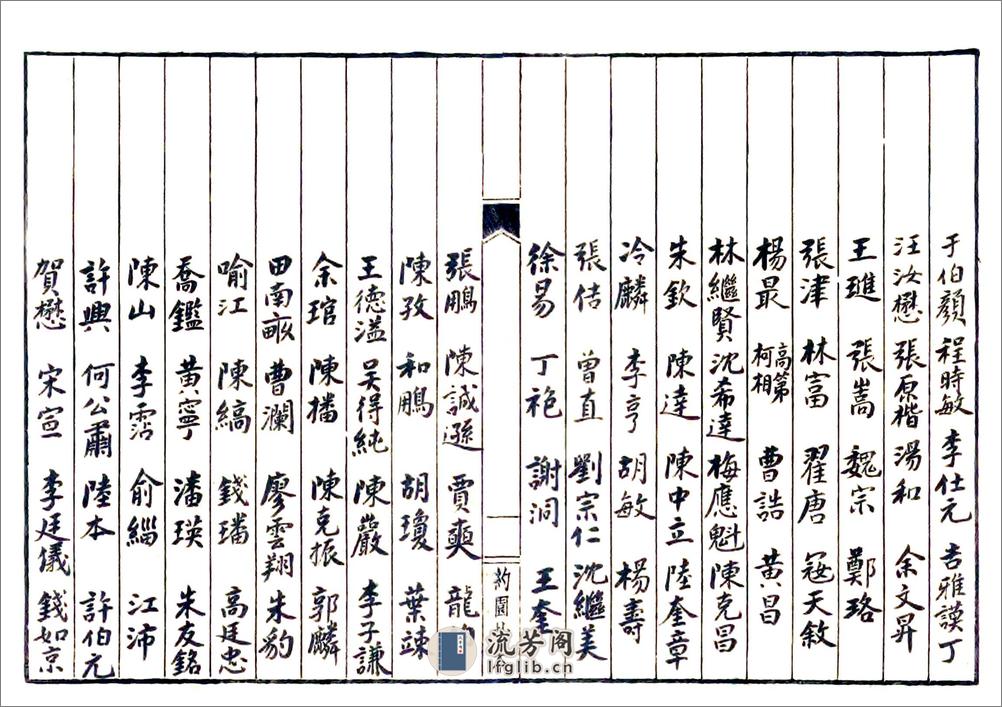 于伯顏 程時敏 李仕元 吉雅謨丁
汪汝懋 張原楷 湯和 余文昇
王璡 張嵩 魏宗 鄭珞
張津 林富 翟唐 寇天敘
楊最 高第 柯相 曹誥 黄昌
林繼賢 沈希達 梅應魁 陳克昌
朱欽 陳達 陳中立 陸奎章
冷麟 李亨 胡敏 楊壽
張佶 曾直 劉宗仁 沈繼美
徐易 丁袍 謝洞 王奎
約園
張鵰 陳諴遜 賈奭 龍
陳孜 和鵰 胡瓊 葉竦
王德溢 吳得純 陳嚴 李子謙
余琯 陳播 陳克振 郭麟
田南畝 曹瀾 廖雲翔 朱豹
喻江 陳縞 錢璠 高廷忠
喬鑑 黄寧 潘瑛 朱友銘
陳山 李霑 俞緇 江沛
許興 何公肅 陸本 許伯元
賀懋 宋宣 李廷儀 錢如京
流芳阁
lfglib.cn